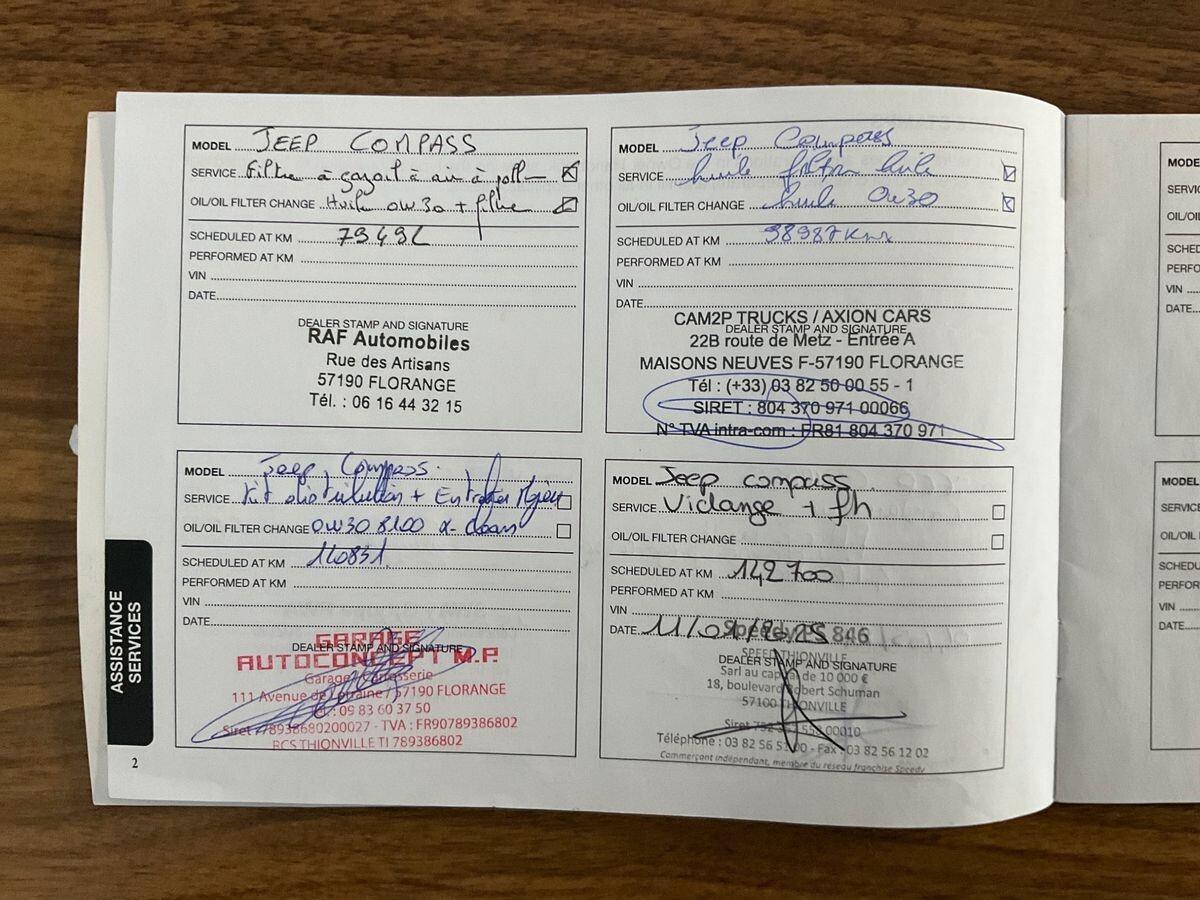 MODEL JEEP COMPASS
SERVICE Filtre à gazoil à air à poll
OIL/OIL FILTER CHANGE Huile 0W30 + filtre
SCHEDULED AT KM
PERFORMED AT KM
VIN
DATE
DEALER STAMP AND SIGNATURE
RAF Automobiles
Rue des Artisans
57190 FLORANGE
Tél. : 06 16 44 32 15
MODEL Jeep Compass
SERVICE huile filtre huile
OIL/OIL FILTER CHANGE huile 0W30
SCHEDULED AT KM 98987 Km
PERFORMED AT KM
VIN
DATE
CAM2P TRUCKS / AXION CARS
DEALER STAMP AND SIGNATURE
22B route de Metz - Entrée A
MAISONS NEUVES F-57190 FLORANGE
Tél : (+33) 03 82 50 00 55 - 1
SIRET : 804 370 971 00066
N° TVA intra-com : FR81 804 370 971
MODEL Jeep Compass
SERVICE Kit distribution +
OIL/OIL FILTER CHANGE 0W30 8100 x-clean
SCHEDULED AT KM 140831
PERFORMED AT KM
VIN
DATE
GARAGE
DEALER STAMP AND SIGNATURE
AUTOCONCEPT M.P.
Garage Carrosserie
111 Avenue de Lorraine / 57190 FLORANGE
Tél : 09 83 60 37 50
Siret 78938680200027 - TVA : FR90789386802
RCS THIONVILLE TI 789386802
MODEL Jeep compass
SERVICE Vidange + fh
OIL/OIL FILTER CHANGE
SCHEDULED AT KM 142700
PERFORMED AT KM
VIN
DATE 846
SPEED THIONVILLE
DEALER STAMP AND SIGNATURE
Sarl au capital de 10 000 €
18, boulevard Robert Schuman
57100 THIONVILLE
Siret
Téléphone : 03 82 56 - Fax 03 82 56 12 02
Commerçant indépendant, membre du réseau franchise Speedy
ASSISTANCE
SERVICES
2
MODE
SERVIC
OIL/OI
SCHED
PERFO
VIN
DATE
MODEL
SERVICE
OIL/OIL
SCHEDU
PERFOR
VIN
DATE